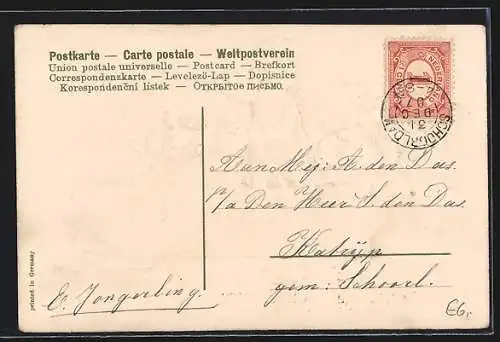 Postkarte — Carte postale — Weltpostverein
Union postale universelle — Postcard — Brefkort
Correspondenzkarte — Levelező-Lap — Dopisnice
Korespondenční lístek — ОТКРЫТОЕ ПИСЬМО.
NEDERLAND
SCHOORLDAM
31 DEC 07
Aan Mej: A. den Das.
p/a Den Heer S. den Das.
Katrijp
gem: Schoorl.
E. Jongerling.
printed in Germany
E6,-